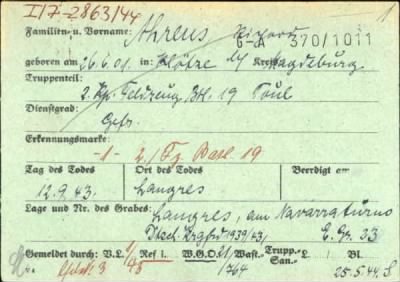 I/7-2863/44
1
Familien- u. Vorname: Ahrens
G-A 370/1011
geboren am 26.6.01. in: Klötze Kreis Magdeburg.
Truppenteil:
2. Kp. Feldzeug Btl. 19 Toul
Dienstgrad:
Gefr.
Erkennungsmarke:
-1- 2./Fz. Batl. 19
Tag des Todes Ort des Todes Beerdigt am
12.9.43. Langres
Lage und Nr. des Grabes: Langres, am Navarraturm
Dtsch. 1939/43, E. Gr. 33
Gemeldet durch: V.L. Ref I. W.G.O. Wast.- Trupp.- San.- L. Bl.
1/48 21/764 25.5.44.